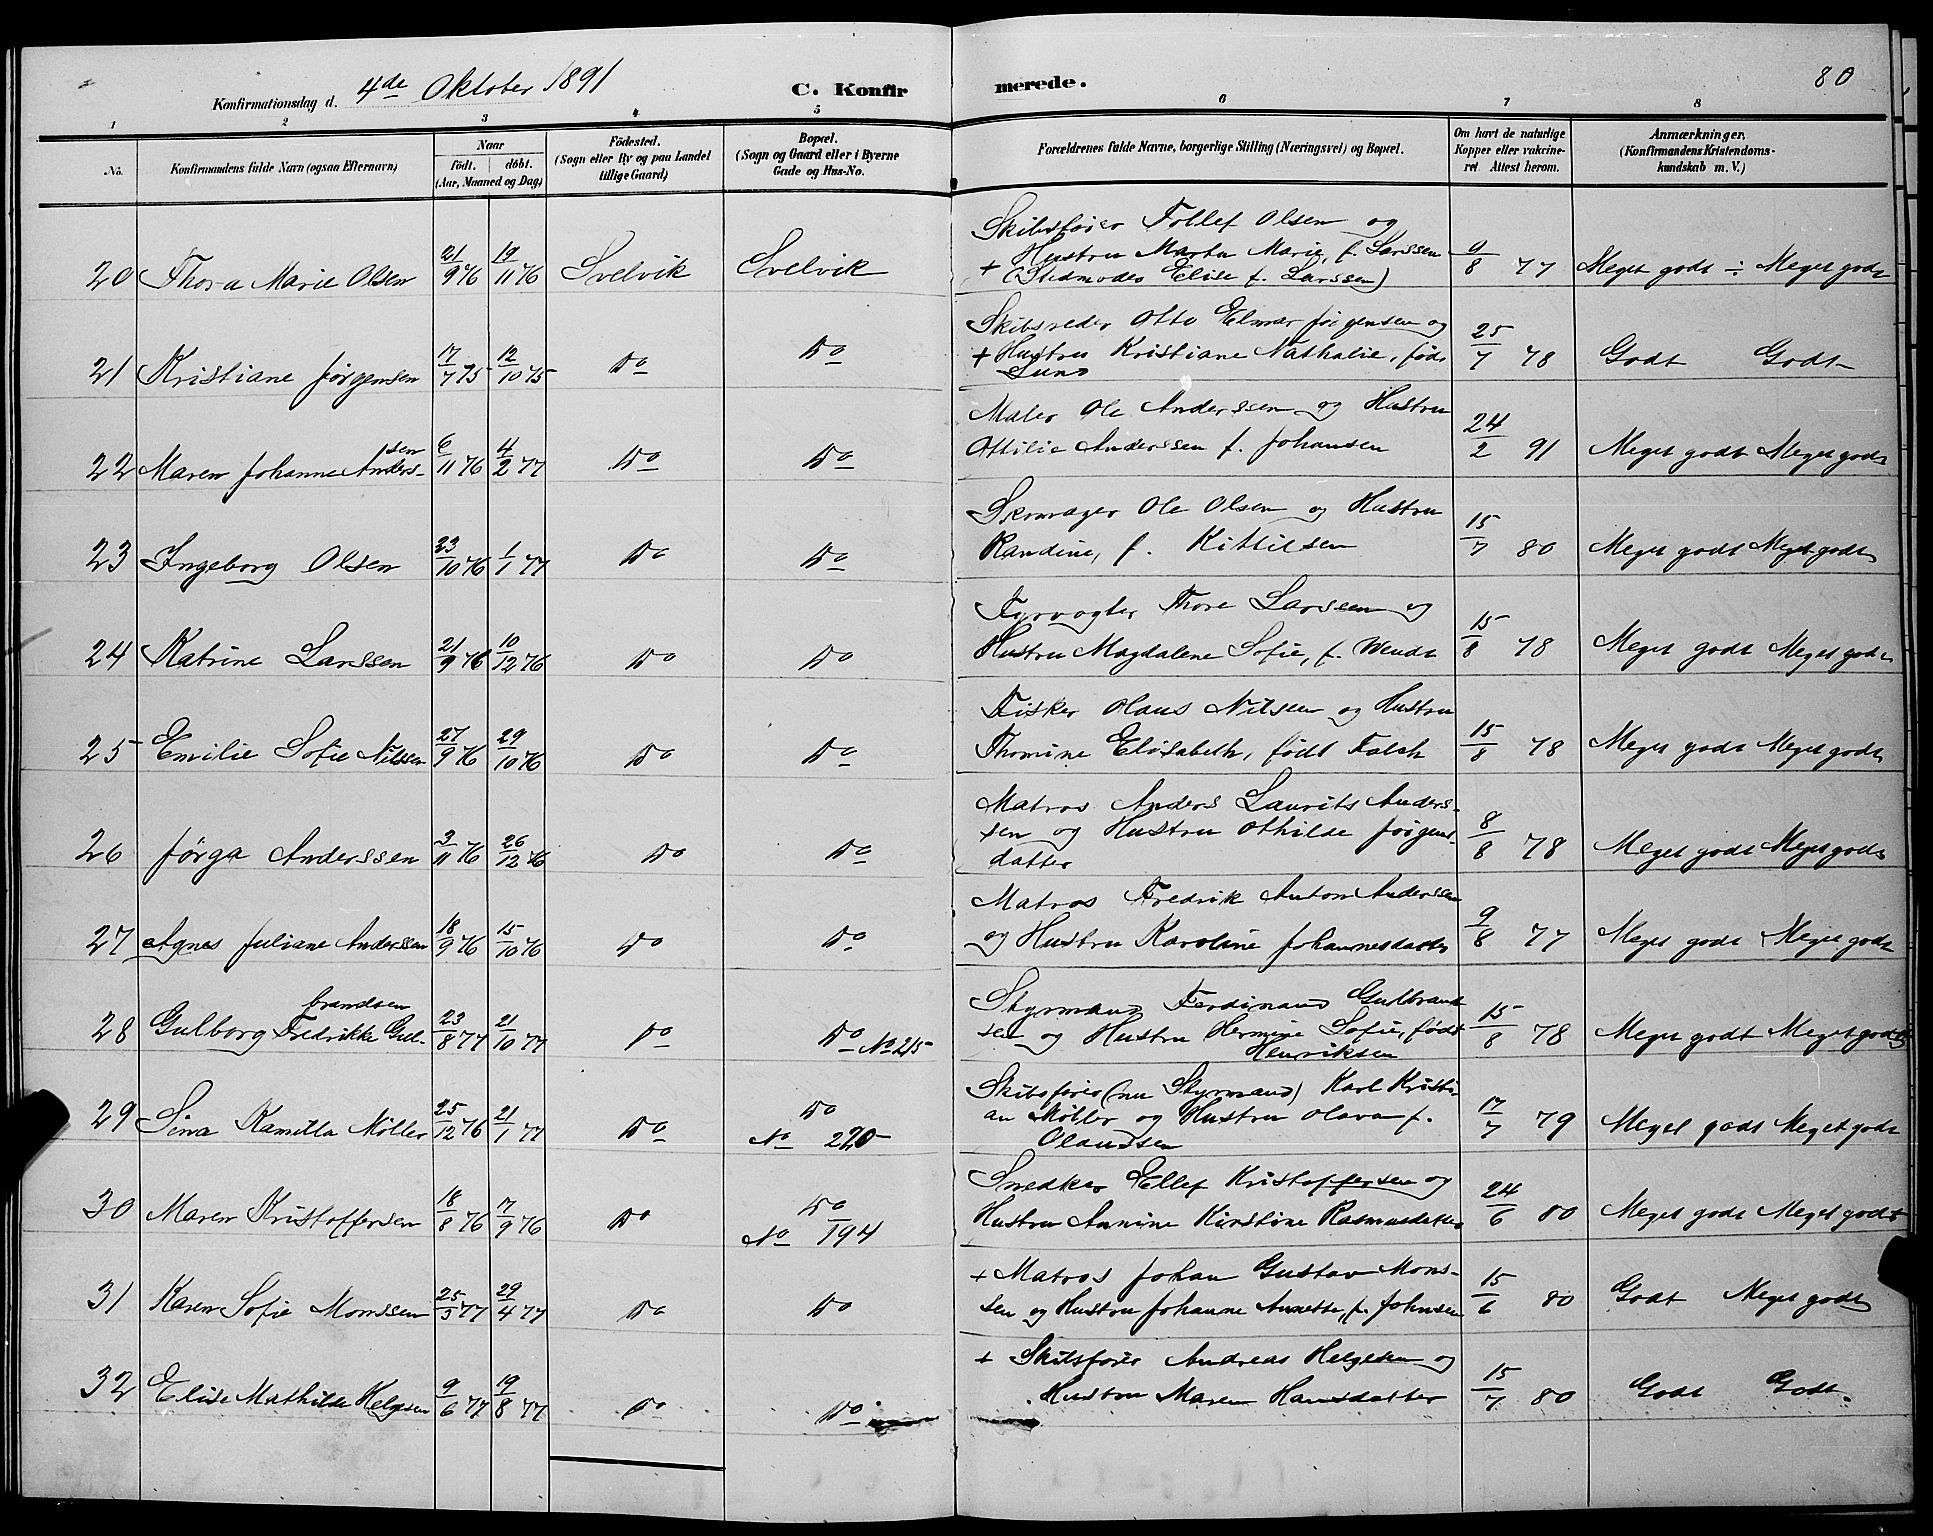 Konfirmationsdag d. 4de Oktober 1891 C. Konfirmerede. 80
1 2 3 4 5 6 7 8
No. Konfirmandens fulde Navn (ogsaa Efternavn) Naar født. døbt. (Aar, Maaned og Dag) Fødested. (Sogn eller By og paa Landet tillige Gaard) Bopæl. (Sogn og Gaard eller i Byerne Gade og Hus-No. Forældrenes fulde Navne, borgerlige Stilling (Næringsvei) og Bopæl. Om havt de naturlige Kopper eller vakcineret Attest herom. Anmærkninger. (Konfirmandens Kristendomskundskab m. V.)
20 Thora Marie Olsen 21/9 76 19/11 76 Svelvik Svelvik Skibsfører Tollef Olsen og
+ Hustru Martha Marie, f. Larssen 9/8 77 Meget godt ÷ Meget godt
(Stedmoder Elise f. Larssen)
21 Kristiane Jørgensen 17/7 75 12/10 75 Do Do Skibsreder Otto Elmar Jørgensen og
+ Hustru Kristiane Nathalie, født 25/7 78 Godt Godt
Lund
22 Maren Johanne Anderssen 6/11 76 4/2 77 Do Do Maler Ole Anderssen og Hustru
Ottilie Anderssen f. Johansen 24/2 91 Meget godt Meget godt
23 Ingeborg Olsen 23/10 76 1/1 77 Do Do Skomager Ole Olsen og Hustru
Randine, f. Kittilsen 15/7 80 Meget godt Meget godt
24 Katrine Larssen 21/9 76 10/12 76 Do Do Fyrvogter Thore Larssen og
Hustru Magdalene Sofie, f. Wendt 15/8 78 Meget godt Meget godt
25 Emilie Sofie Nilssen 27/9 76 29/10 76 Do Do Fisker Olaus Nilsen og Hustru
Thomine Elisabeth, født Falch 15/8 78 Meget godt Meget godt
26 Jørga Anderssen 3/11 76 26/12 76 Do Do Matros Anders Laurits Anders-
sen og Hustru Othilde Jørgens- 8/8 78 Meget godt Meget godt
datter
27 Agnes Juliane Anderssen 18/9 76 15/10 76 Do Do Matros Fredrik Anton Anderssen
og Hustru Karoline Johannesdatter 9/8 77 Meget godt Meget godt
28 Gulborg Fredrikke Gulbrandsen 23/8 77 21/10 77 Do Do No 215 Styrmand Ferdinand Gulbrand-
sen og Hustru Hermine Sofie, født 15/8 78 Meget godt Meget godt
Henriksen
29 Sina Kamilla Møller 25/12 76 21/1 77 Do Do No 220 Skibsfører (nu Styrmand) Karl Kristi-
an Møller og Hustru Olava f. 17/7 79 Meget godt Meget godt
Olaussen
30 Maren Kristoffersen 18/8 76 17/9 76 Do Do No 194 Snedker Ellef Kristoffersen og
Hustru Annine Kirstine Rasmusdatter 24/6 80 Meget godt Meget godt
31 Karen Sofie Monssen 25/3 77 29/4 77 Do Do + Matros Johan Gustav Mons-
sen og Hustru Johanne Annette, f. Johnsen 15/6 80 Godt Meget godt
32 Elise Mathilde Helgesen 9/6 77 19/8 77 Do Do + Skibsfører Andreas Helgesen og
Hustru Maren Hansdatter 15/7 80 Godt Godt